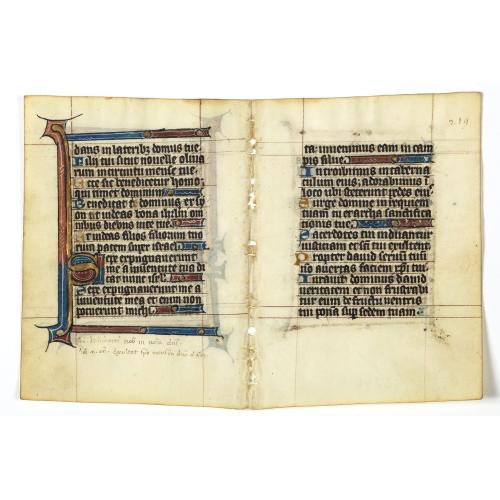 dans in lateribz domus tue.
Filii tui sicut nouelle oliua
rum in circuitu mense tue.
Ecce sic benedicetur homo
qui timet dominum.
Benedicat t dominus ex sy
on ut uideas bona ihrlm om
nibus diebus uite tue.
Et uideas filios filiorum tuo
rum pacem super israel.
Sepe expugnauerunt
me a iuuentute mea di
cat nunc isrl.
Sepe expugnauerunt me a
iuuentute mea et enim non
potuerunt michi.
219
ta inuenimus eam in cam
pis silue.
Introibimus in taberna
culum eius adorabimus i
loco ubi steterunt pedes eius.
Surge domine in requiem
tuam tu et archa sanctifica
tionis tue.
Sacerdotes tui induantur
iusticiam et sci tui exultent.
Propter dauid seruum tuum
no auertas faciem xpi tui.
Iurauit dominus dauid
ueritatem et non frustrabi
tur eum de fructu uentris
tui pona sup sedem tuam.